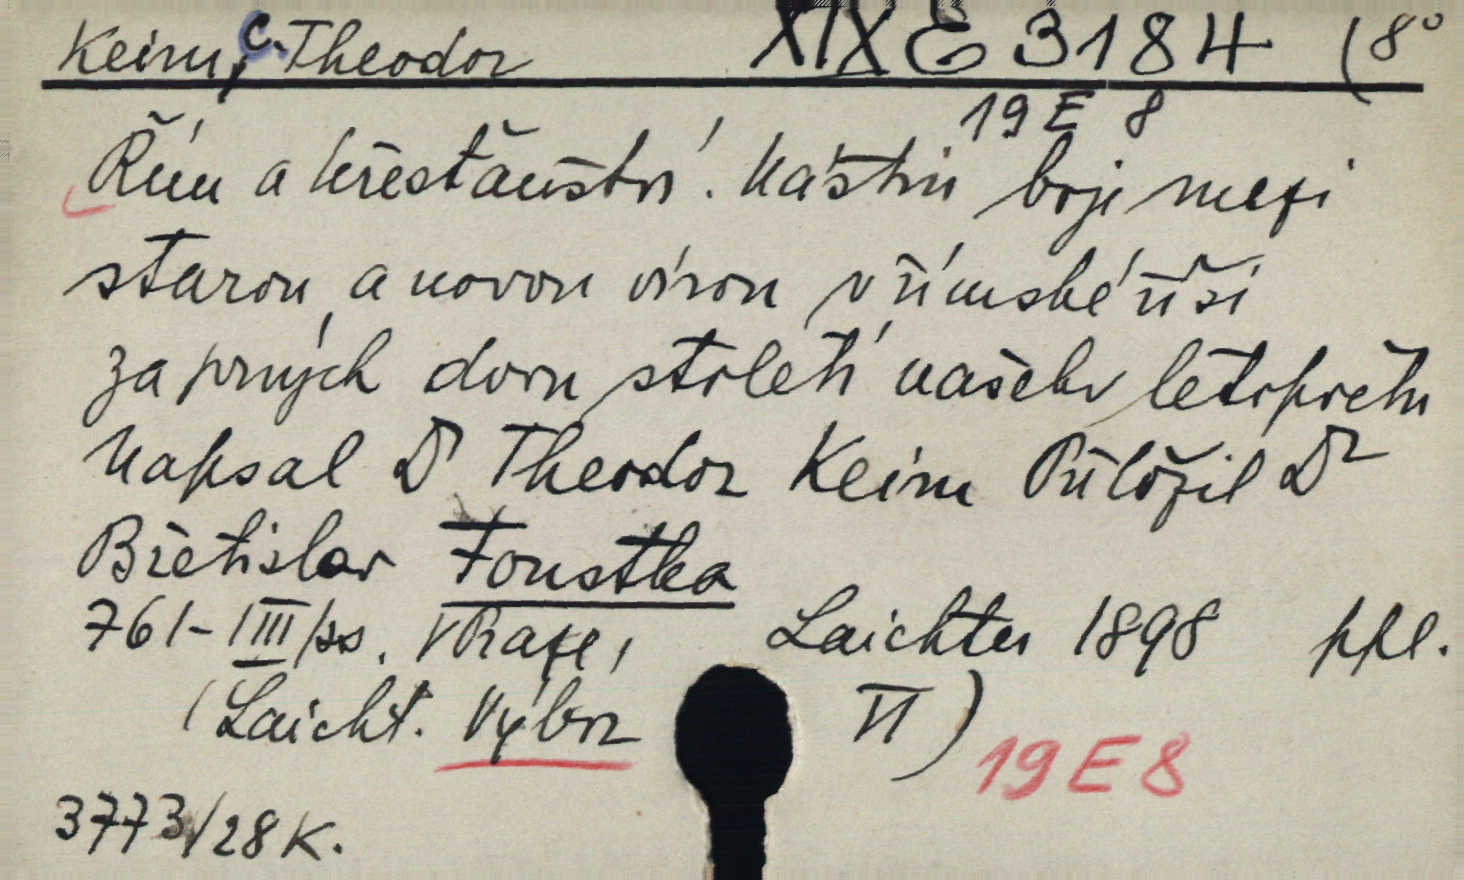 Keim, C. Theodor XIX E 3184 (8°
19 E 8
Řím a křesťanství. Nástin boje mezi
starou a novou vírou v římské říši
za prvých dvou století našeho letopočtu
Napsal Dr Theodor Keim Přeložil Dr
Břetislav Foustka
761-|III|ss. V Praze, Laichter 1898 ppl.
(Laicht. Výbor VI)
19 E 8
3773/28 K.